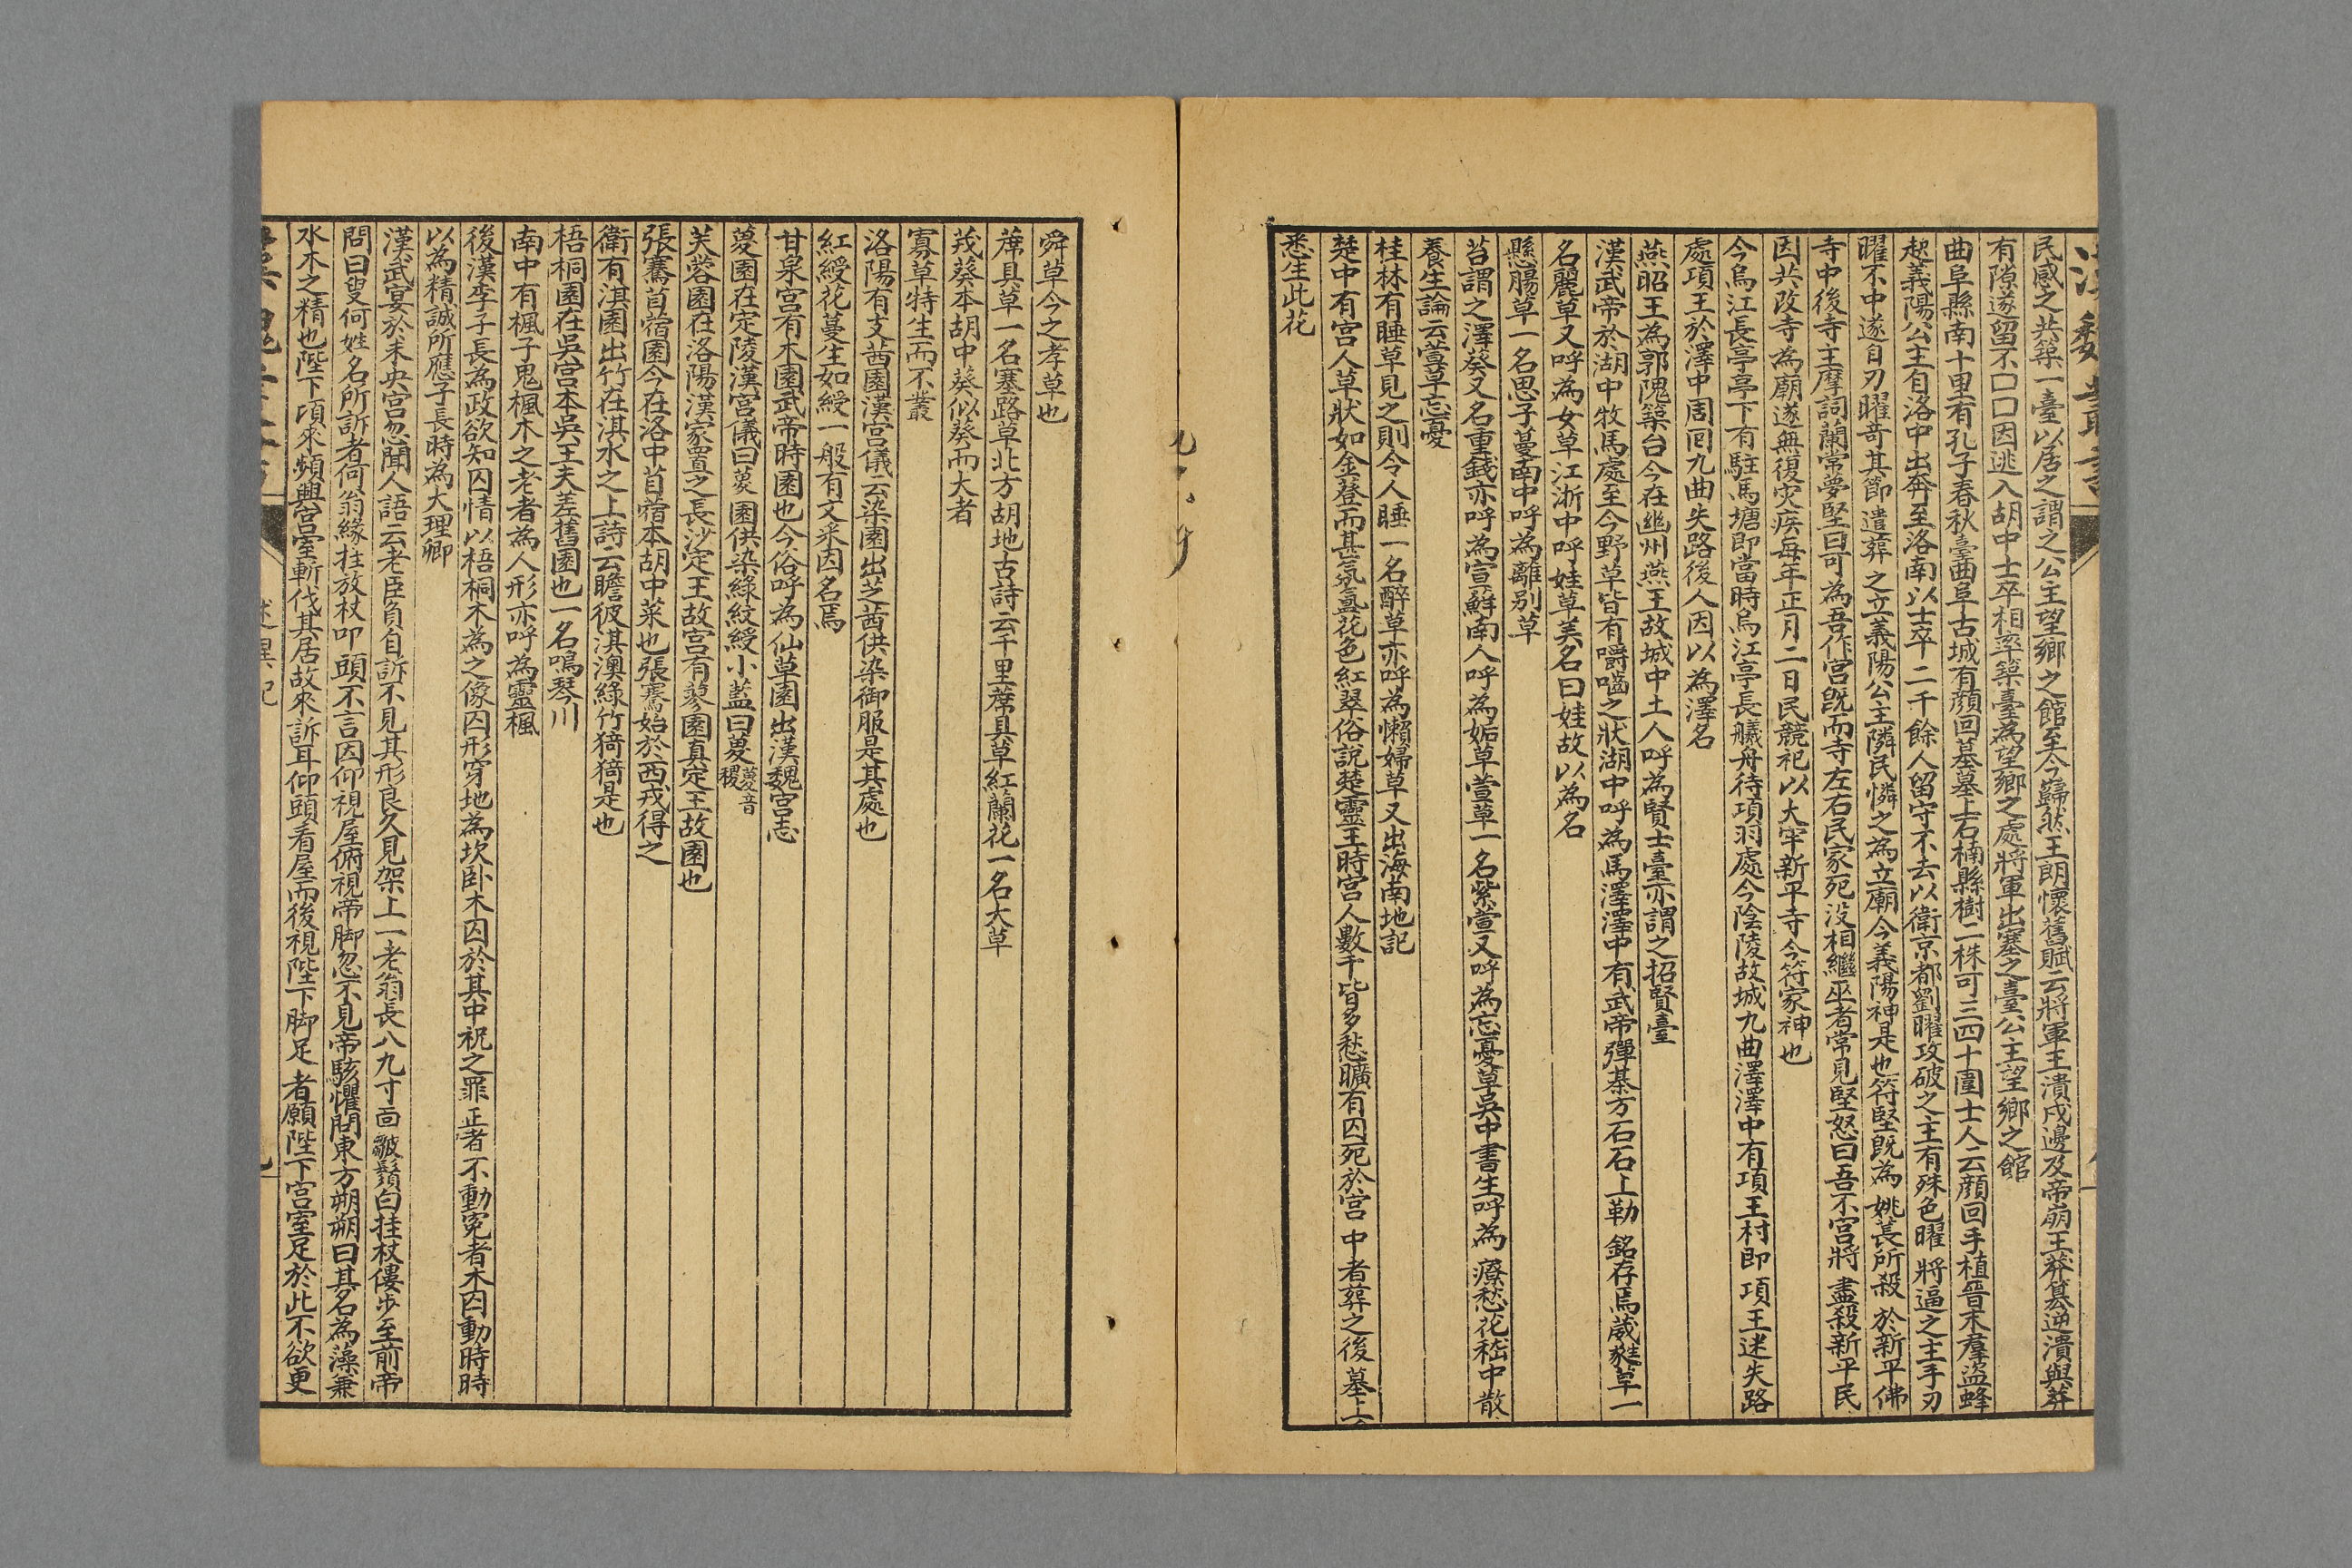 民感之共築一臺以居之謂之公主望鄉之館至今巋然王朗懷舊賦云將軍王瀆戍邊及帝崩王莽篡逆瀆與莽
有隙遂留不口口因逃入胡中士卒相率築臺為望鄉之處將軍出塞之臺公主望鄉之館
曲阜縣南十里有孔子春秋臺曲阜古城有顏回墓墓上石楠縣樹二株可三四十圍士人云顏回手植晉末羣盜蜂
起義陽公主自洛中出奔至洛南以士卒二千餘人留守不去以衛京都劉曜攻破之主有殊色曜將逼之主手刃
曜不中遂自刃曜竒其節遣葬之立義陽公主隣民憐之為立廟今義陽神是也符堅既為姚萇所殺於新平佛
寺中後寺主摩訶蘭常夢堅曰可為吾作宫既而寺左右民家死没相繼巫者常見堅怒曰吾不宫將盡殺新平民
因共改寺為廟遂無復灾疾每年正月二日民競祀以大牢新平寺今符家神也
今烏江長亭亭下有駐馬塘即當時烏江亭長艤舟待項羽處今陰陵故城九曲澤澤中有項王村即項王迷失路
處項王於澤中周囘九曲失路後人因以為澤名
燕昭王為郭隗築台今在幽州燕王故城中土人呼為賢士臺亦謂之招賢臺
漢武帝於湖中牧馬處至今野草皆有嚼嚙之狀湖中呼為馬澤澤中有武帝彈棊方石石上勒銘存焉葳蕤草一
名麗草又呼為女草江浙中呼娃草美名曰娃故以為名
懸腸草一名思子蔓南中呼為離别草
苔謂之澤葵又名重錢亦呼為宣蘚南人呼為妬草萱草一名紫萱又呼為忘憂草吳中書生呼為療愁花嵇中散
養生論云萱草忘憂
桂林有睡草見之則令人睡一名醉草亦呼為懶婦草又出海南地記
楚中有宫人草狀如金䔲而甚氛氲花色紅翠俗説楚靈王時宫人數千皆多愁曠有囚死於宫中者葬之後墓上
悉生此花
舜草今之孝草也
蓆具草一名塞路草北方胡地古詩云千里蓆具草紅蘭花一名大草
茙葵本胡中葵似葵而大者
寡草特生而不叢
洛陽有支茜園漢宫儀云染園出芝茜供染御服是其處也
紅綬花蔓生如綬一般有文采因名焉
甘泉宫有木園武帝時園也今俗呼為仙草園出漢魏宫志
蓌園在定陵漢宫儀曰蓌園供染綠紋綬小藍曰蓌蓌音稷
芙蓉園在洛陽漢家置之長沙定王故宫有蓼園真定王故園也
張騫苜蓿園今在洛中苜蓿本胡中菜也張騫始於西戎得之
衛有淇園出竹在淇水之上詩云瞻彼淇澳綠竹猗猗是也
梧桐園在吳宫本吳王夫差舊園也一名鳴琴川
南中有楓子鬼楓木之老者為人形亦呼為靈楓
後漢李子長為政欲知囚情以梧桐木為之像囚形穿地為坎卧木囚於其中祝之罪正者不動寃者木囚動時時
以為精誠所應子長時為大理卿
漢武宴於未央宫忽聞人語云老臣負自訴不見其形良久見架上一老翁長八九寸面皺鬚白拄杖僂步至前帝
問曰叟何姓名所訴者何翁緣拄放杖叩頭不言因仰視屋俯視帝脚忽不見帝駭懼問東方朔朔曰其名為藻兼
水木之精也陛下頃來頻興宫室斬伐其居故來訴耳仰頭看屋而後視陛下脚足者願陛下宫室足於此不欲更